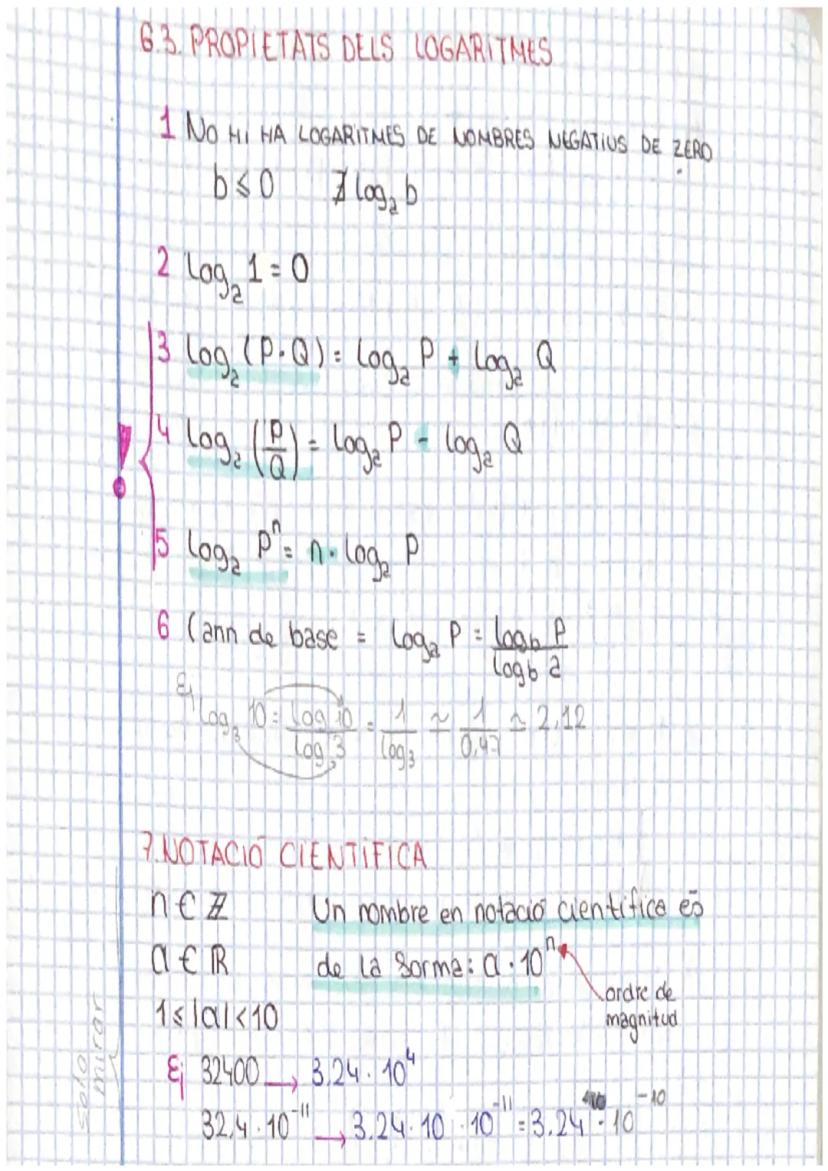 6.3. PROPIETATS DELS LOGARITMES
1 NO HI HA LOGARITMES DE NOMBRES NEGATIUS DE ZERO
b ≤ 0 ∄ log₂ b
2 log₂ 1 = 0
3 log₂ (P·Q) = log₂ P + log₂ Q
4 log₂ (P/Q) = log₂ P - log₂ Q
5 log₂ Pⁿ = n · log₂ P
6 Cann de base = log₂ P = log_b P / log_b 2
Ej log₃ 10 = log 10 / log 3 = 1 / log 3 ≃ 1 / 0,47 ≃ 2,12
7. NOTACIÓ CIENTÍFICA
n ∈ ℤ Un nombre en notació científica és
a ∈ ℝ de la forma: a · 10ⁿ
ordre de
magnitud
1 ≤ |a| < 10
Ej 32400 → 3,24 · 10⁴
32,4 · 10⁻¹¹ → 3,24 · 10 · 10⁻¹¹ = 3,24 · 10⁻¹⁰
solo
mirar